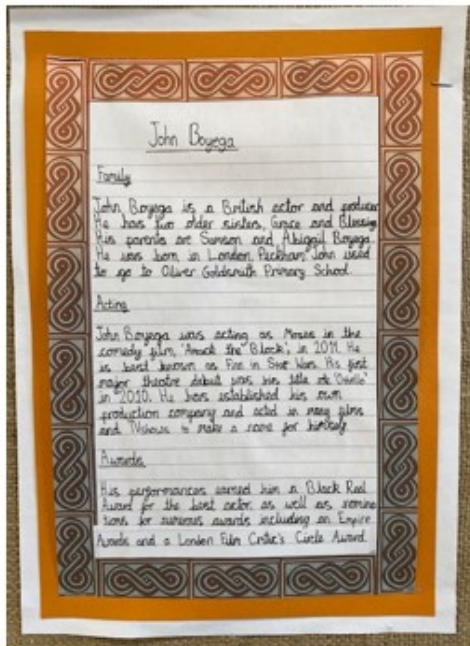 John Boyega
Family
John Boyega is a British actor and producer
He has two older sisters, Grace and Blessing
His parents are Samson and Abigail Boyega.
He was born in London, Peckham. John used
to go to Oliver Goldsmith Primary School.
Acting
John Boyega was acting as Moses in the
comedy film, 'Attack the Block', in 2011. He
is best known as Finn in Star Wars. His first
major theatre debut was his title role 'Othello'
in 2010. He has established his own
production company and acted in many films
and TVshows to make a name for himself.
Awards
His performances earned him a Black Reel
Award for the best actor, as well as nomina
tions for numerous awards including an Empire
Awards and a London Film Critic's Circle Award.